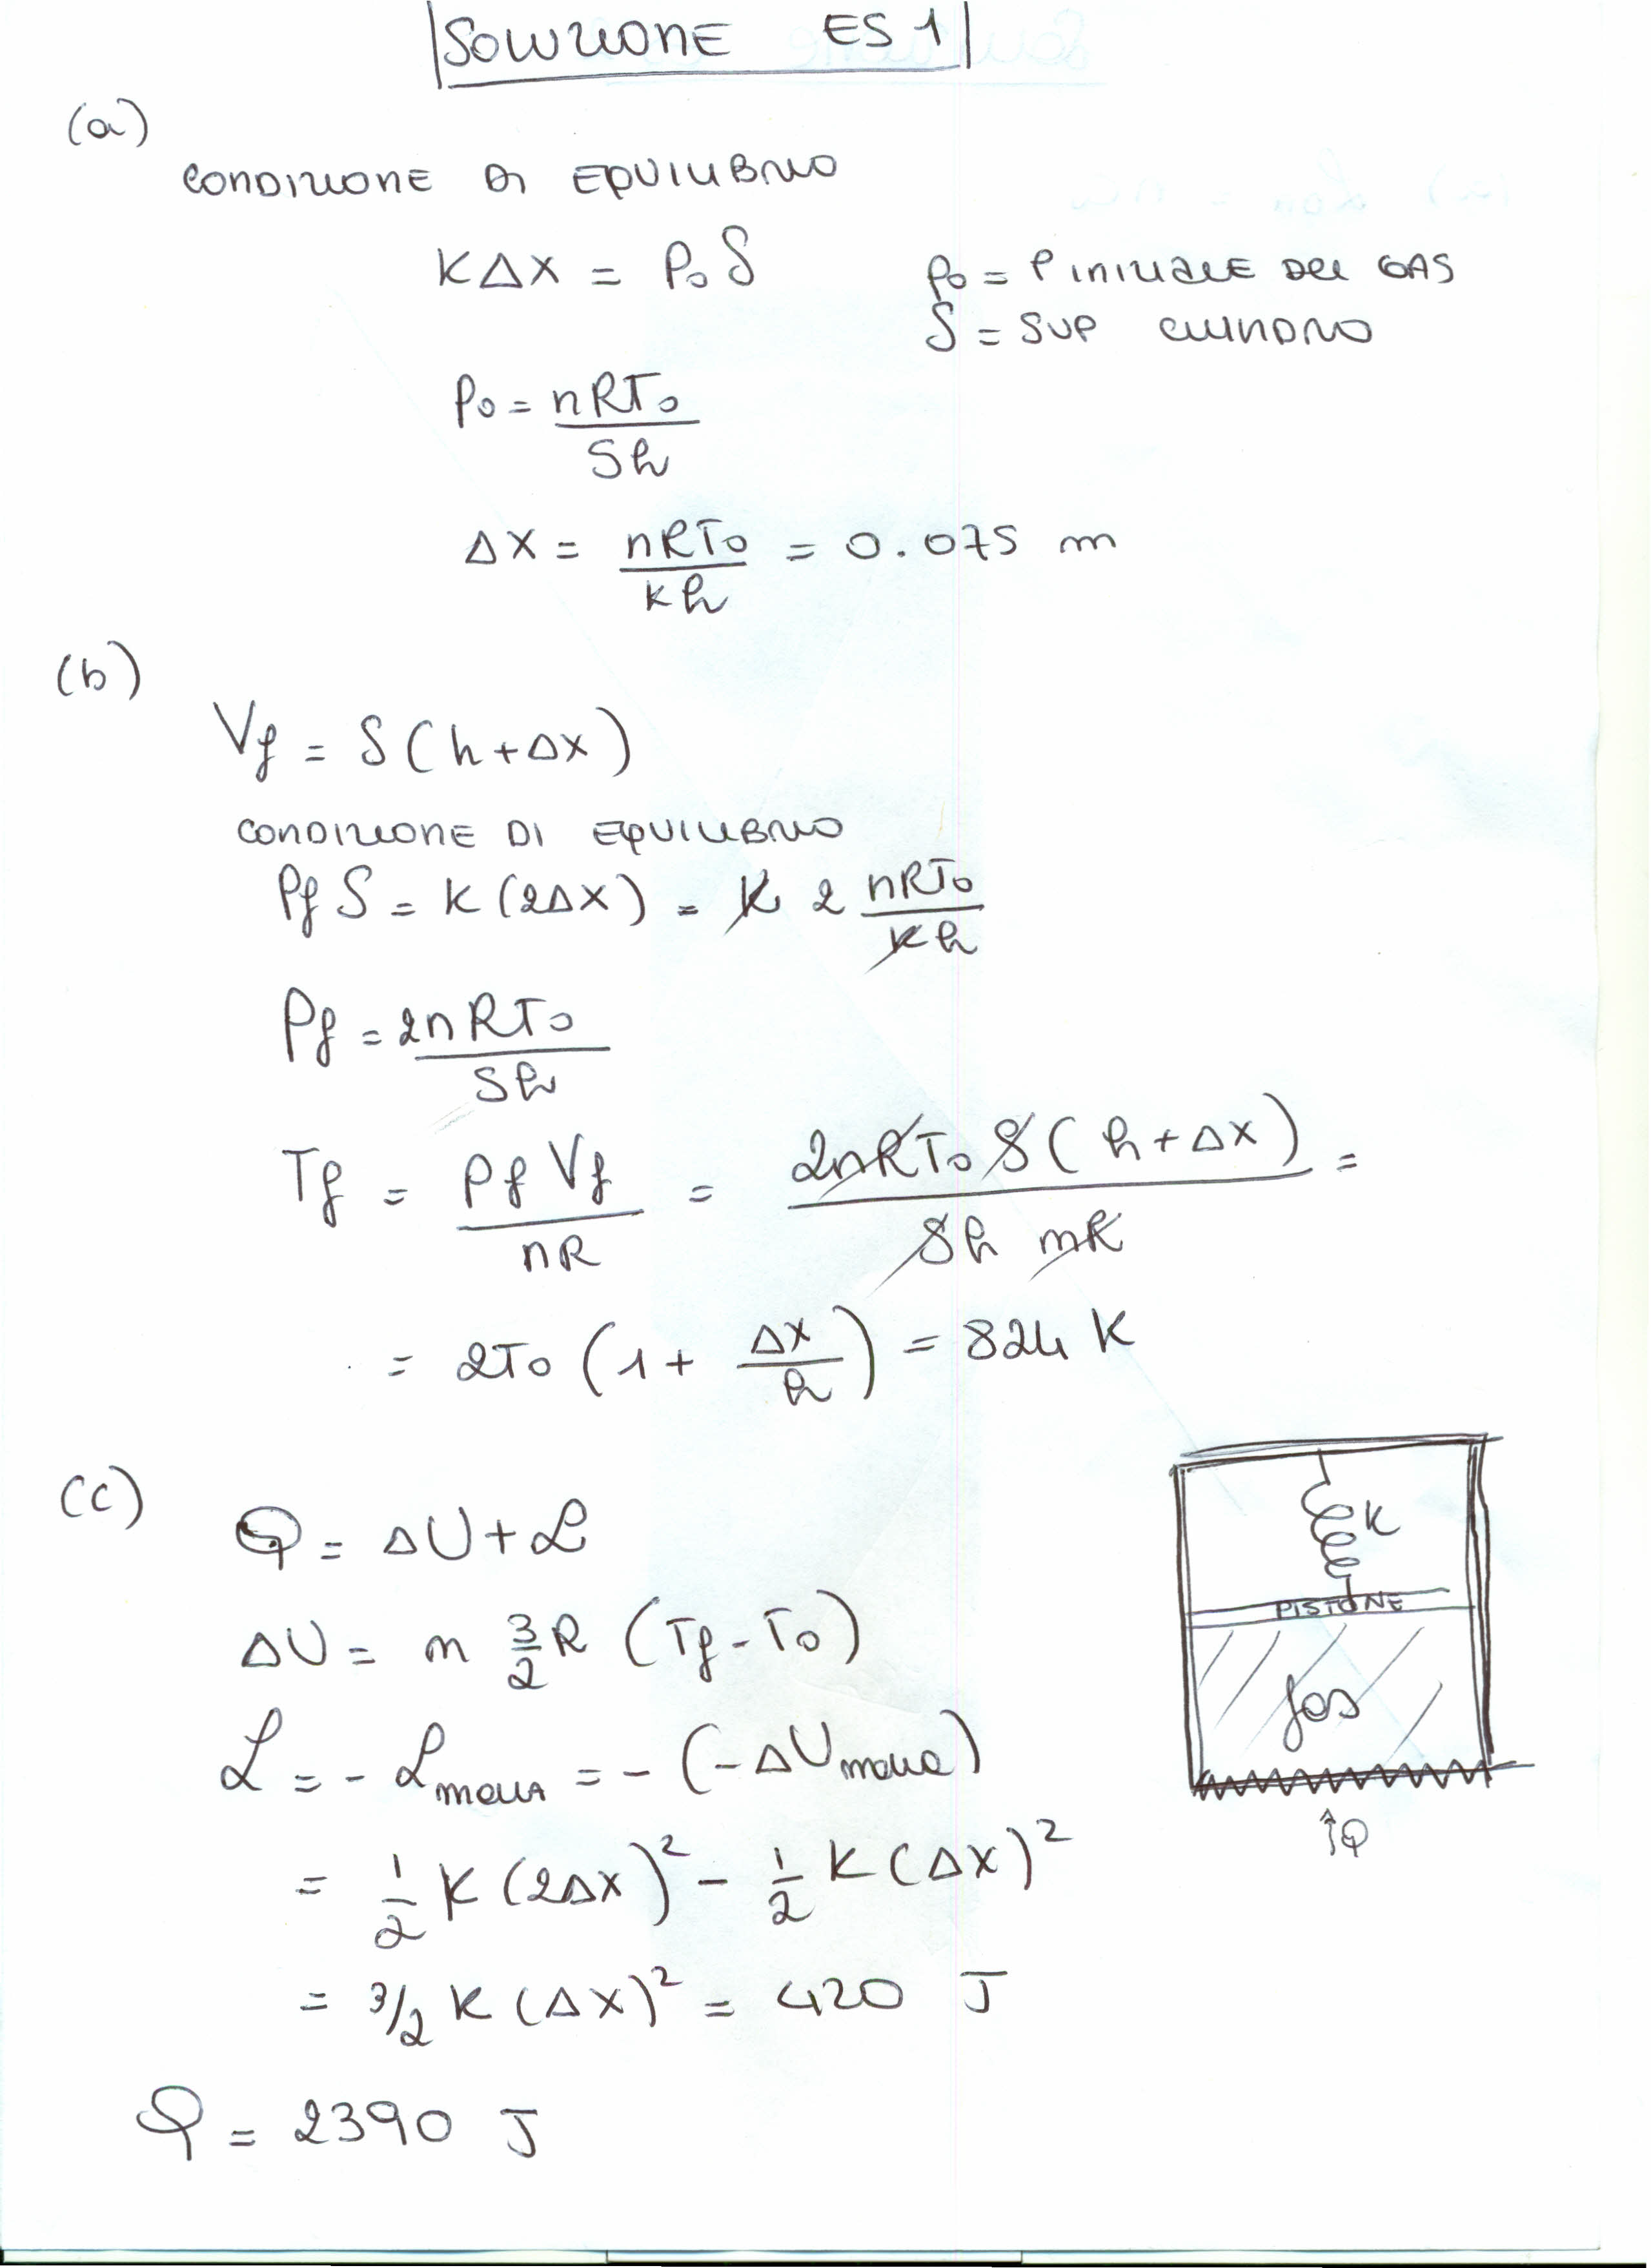 SOLUZIONE ES 1
(a)
CONDIZIONE DI EQUILIBRIO
KΔX = P₀ S
P₀ = P INIZIALE DEL GAS
S = SUP CILINDRO
P₀ = nRT₀ / Sh
ΔX = nRT₀ / kh = 0.075 m
(b)
Vf = S(h+ΔX)
CONDIZIONE DI EQUILIBRIO
Pf S = K (2ΔX) = K 2 nRT₀ / Kh
Pf = 2nRT₀ / Sh
Tf = Pf Vf / nR = 2nRT₀ S(h+ΔX) / Sh nR =
= 2T₀ (1 + ΔX / h) = 824 K
(c)
Q = ΔU + L
ΔU = n 3/2 R (Tf - T₀)
L = - L molla = - (-ΔU molla)
= 1/2 K (2ΔX)² - 1/2 K (ΔX)²
= 3/2 K (ΔX)² = 420 J
Q = 2390 J
K
PISTONE
gas
↑Q